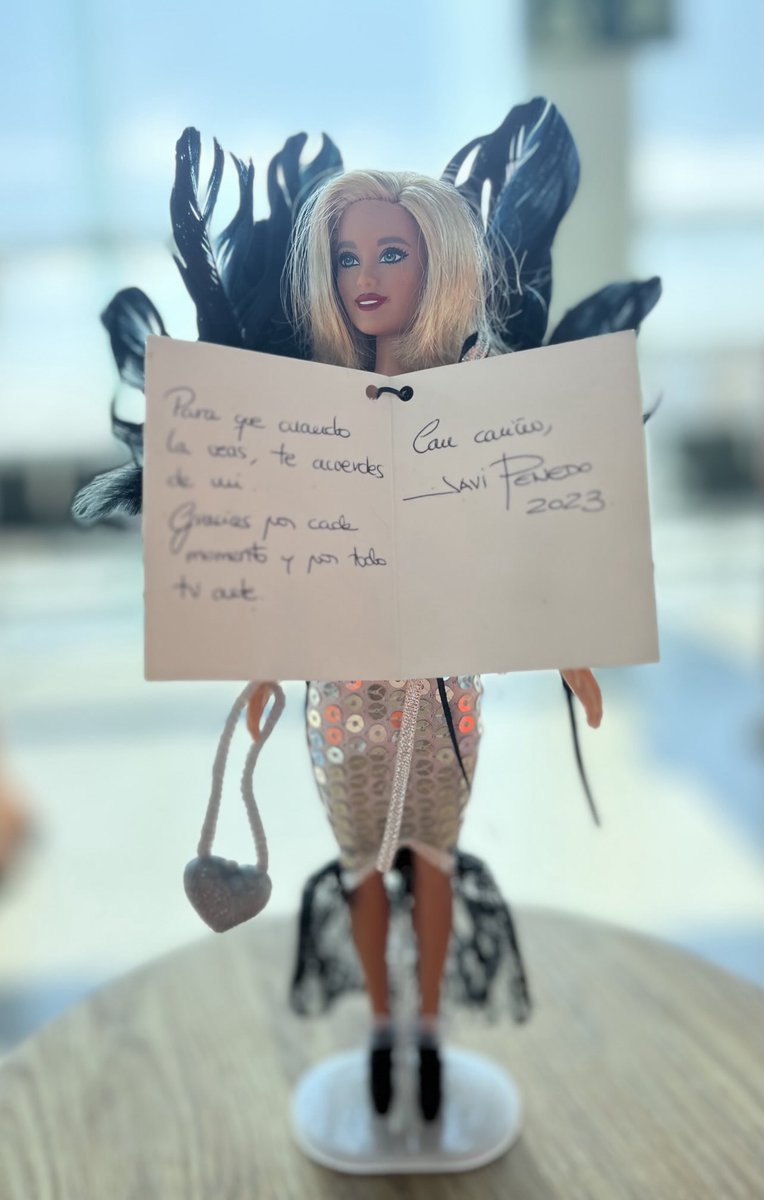 Para que cuando
la veas, te acuerdes
de mi.
Gracias por cada
momento y por todo
tu arte.
Con cariño,
Javi Penedo
2023